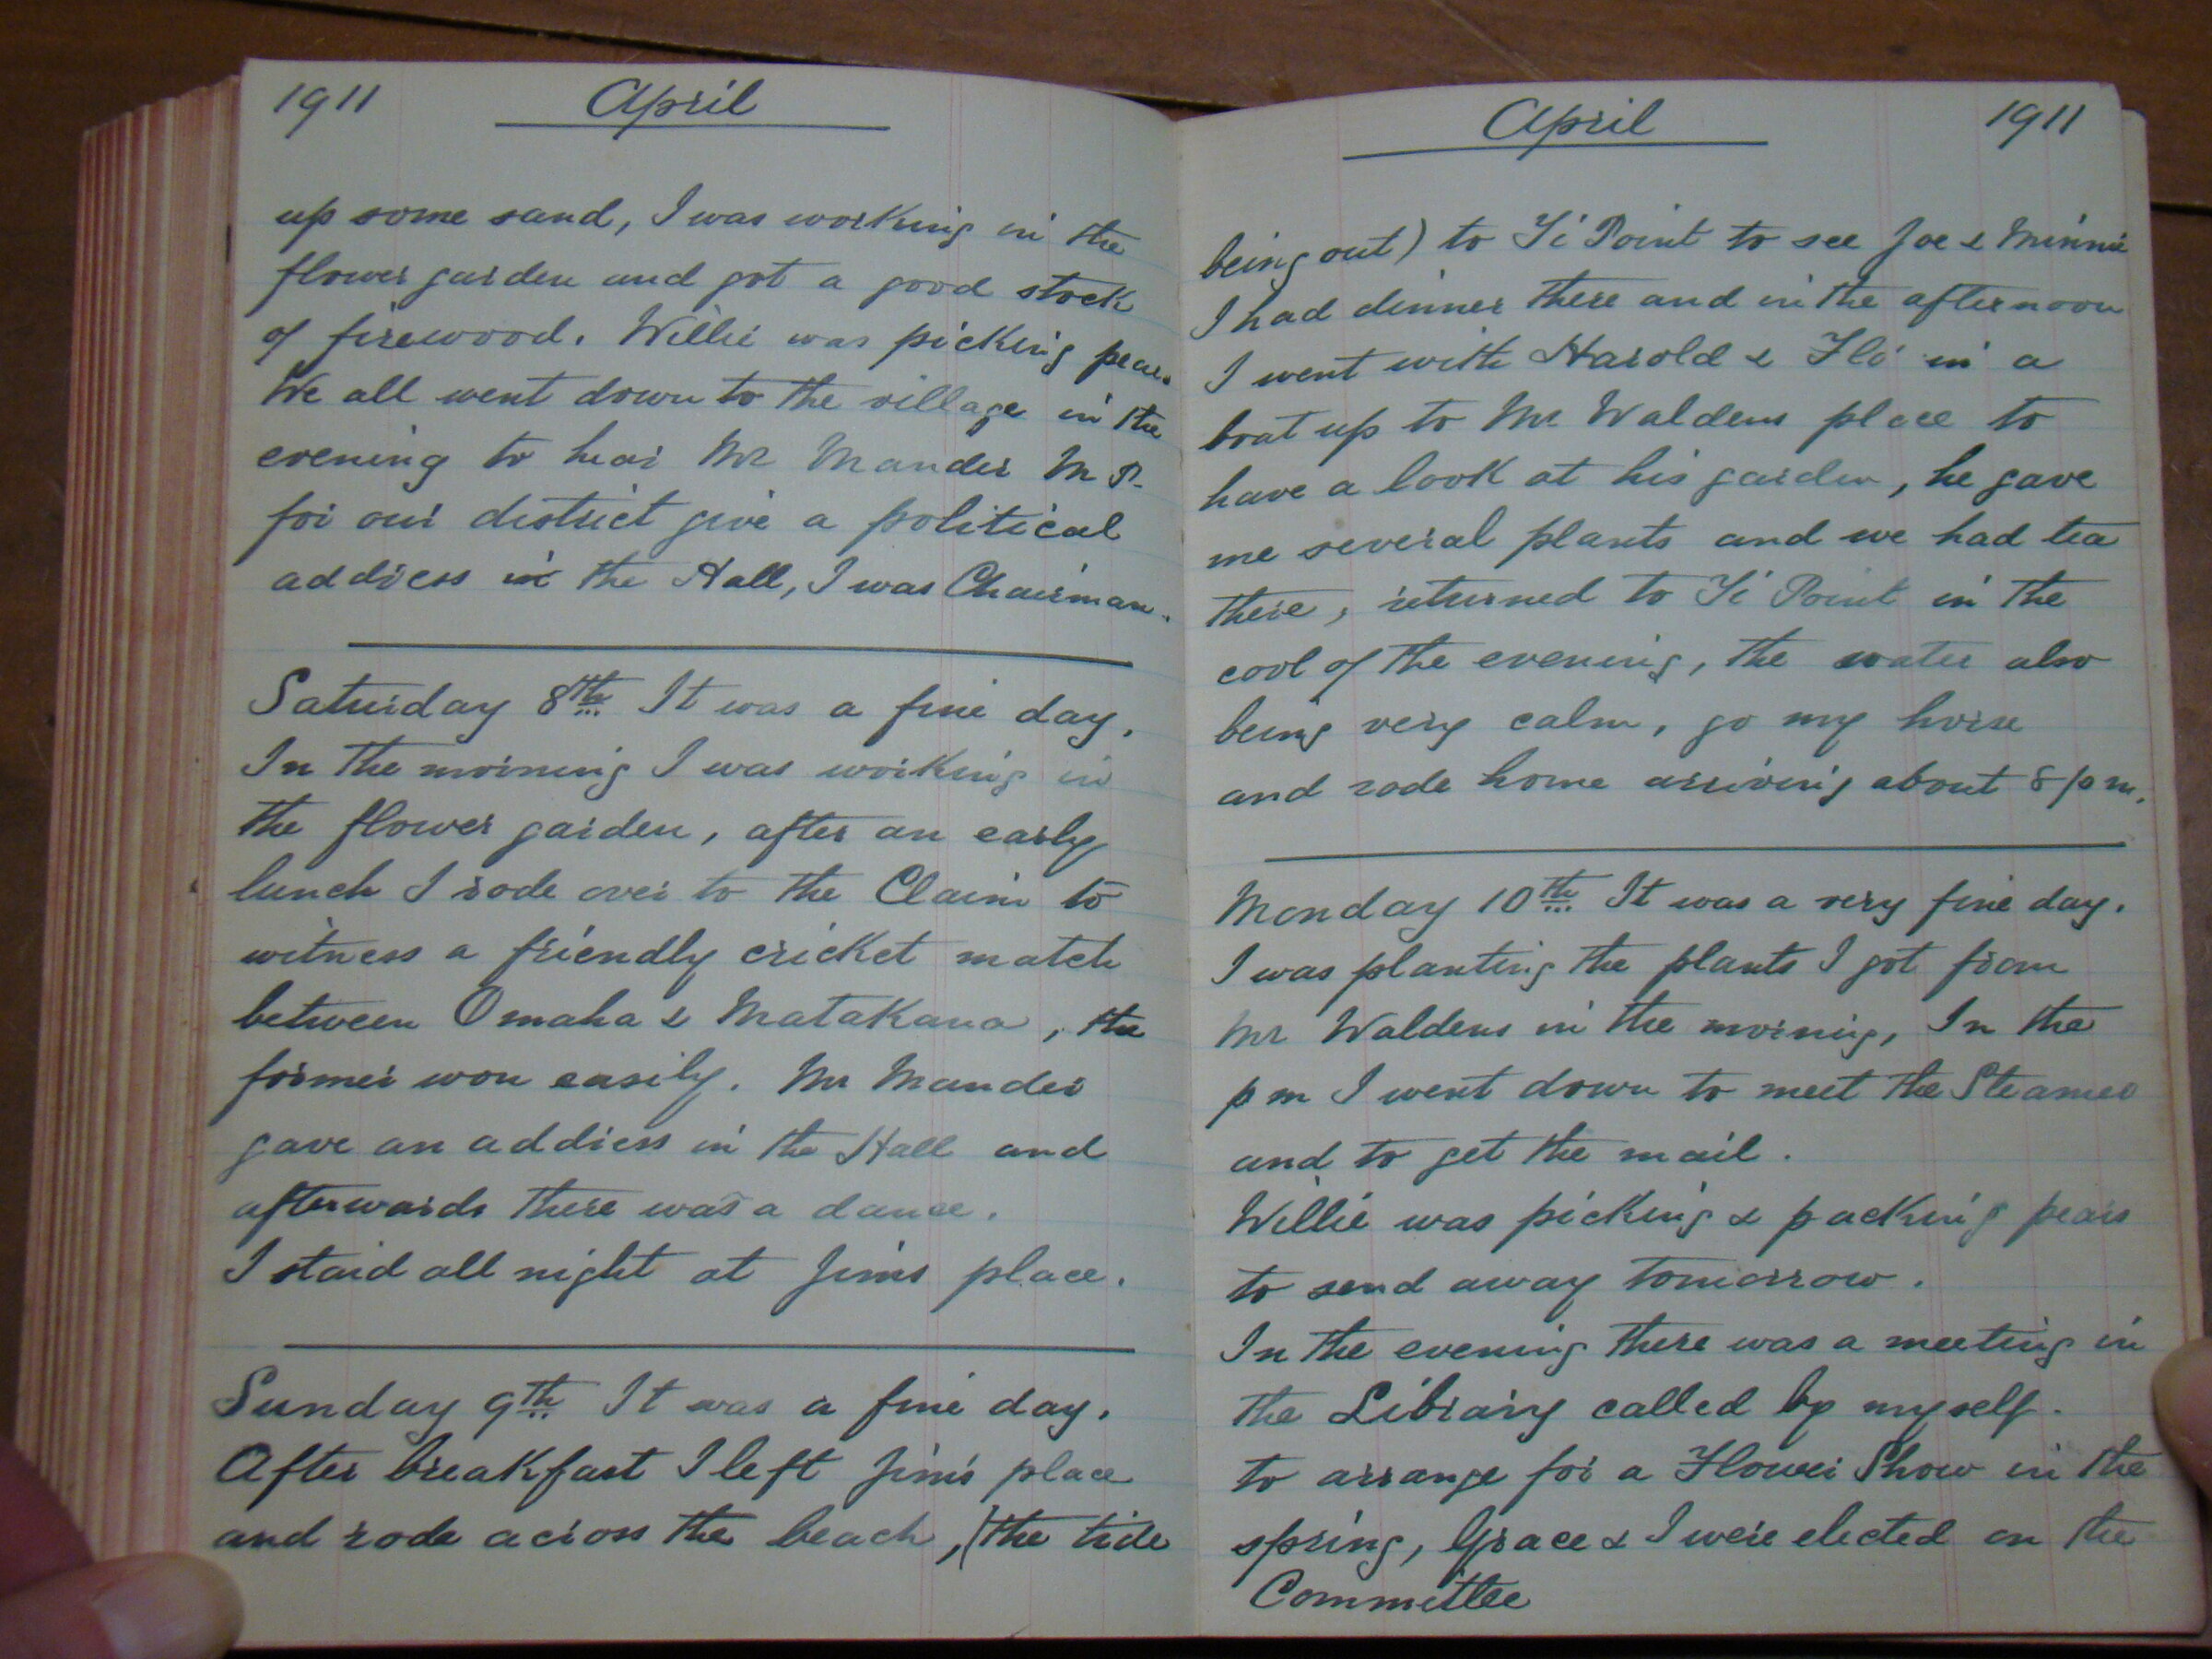 1911 April
up some sand, I was working in the
flower garden and got a good stock
of firewood. Willie was picking pears
We all went down to the village in the
evening to hear Mr Mander M P.
for our district give a political
address in the Hall, I was Chairman.
Saturday 8th It was a fine day.
In the morning I was working in
the flower garden, after an early
lunch I rode over to the Claim to
witness a friendly cricket match
between Omaha & Matakana, the
former won easily. Mr Mander
gave an address in the Hall and
afterwards there was a dance.
I staid all night at Jims place.
Sunday 9th It was a fine day.
After breakfast I left Jim's place
and rode across the beach, (the tide
April 1911
being out) to Ti Point to see Joe & Minnie
I had dinner there and in the afternoon
I went with Harold & Flo in a
boat up to Mr Waldens place to
have a look at his garden, he gave
me several plants and we had tea
there, returned to Ti Point in the
cool of the evening, the water also
being very calm, go my horse
and rode home arriving about 8 pm.
Monday 10th It was a very fine day.
I was planting the plants I got from
Mr Waldens in the morning, In the
p m I went down to meet the Steamer
and to get the mail.
Willie was picking & packing pears
to send away tomorrow.
In the evening there was a meeting in
the Library called by myself.
to arrange for a Flower Show in the
spring, Grace & I were elected on the
Committee